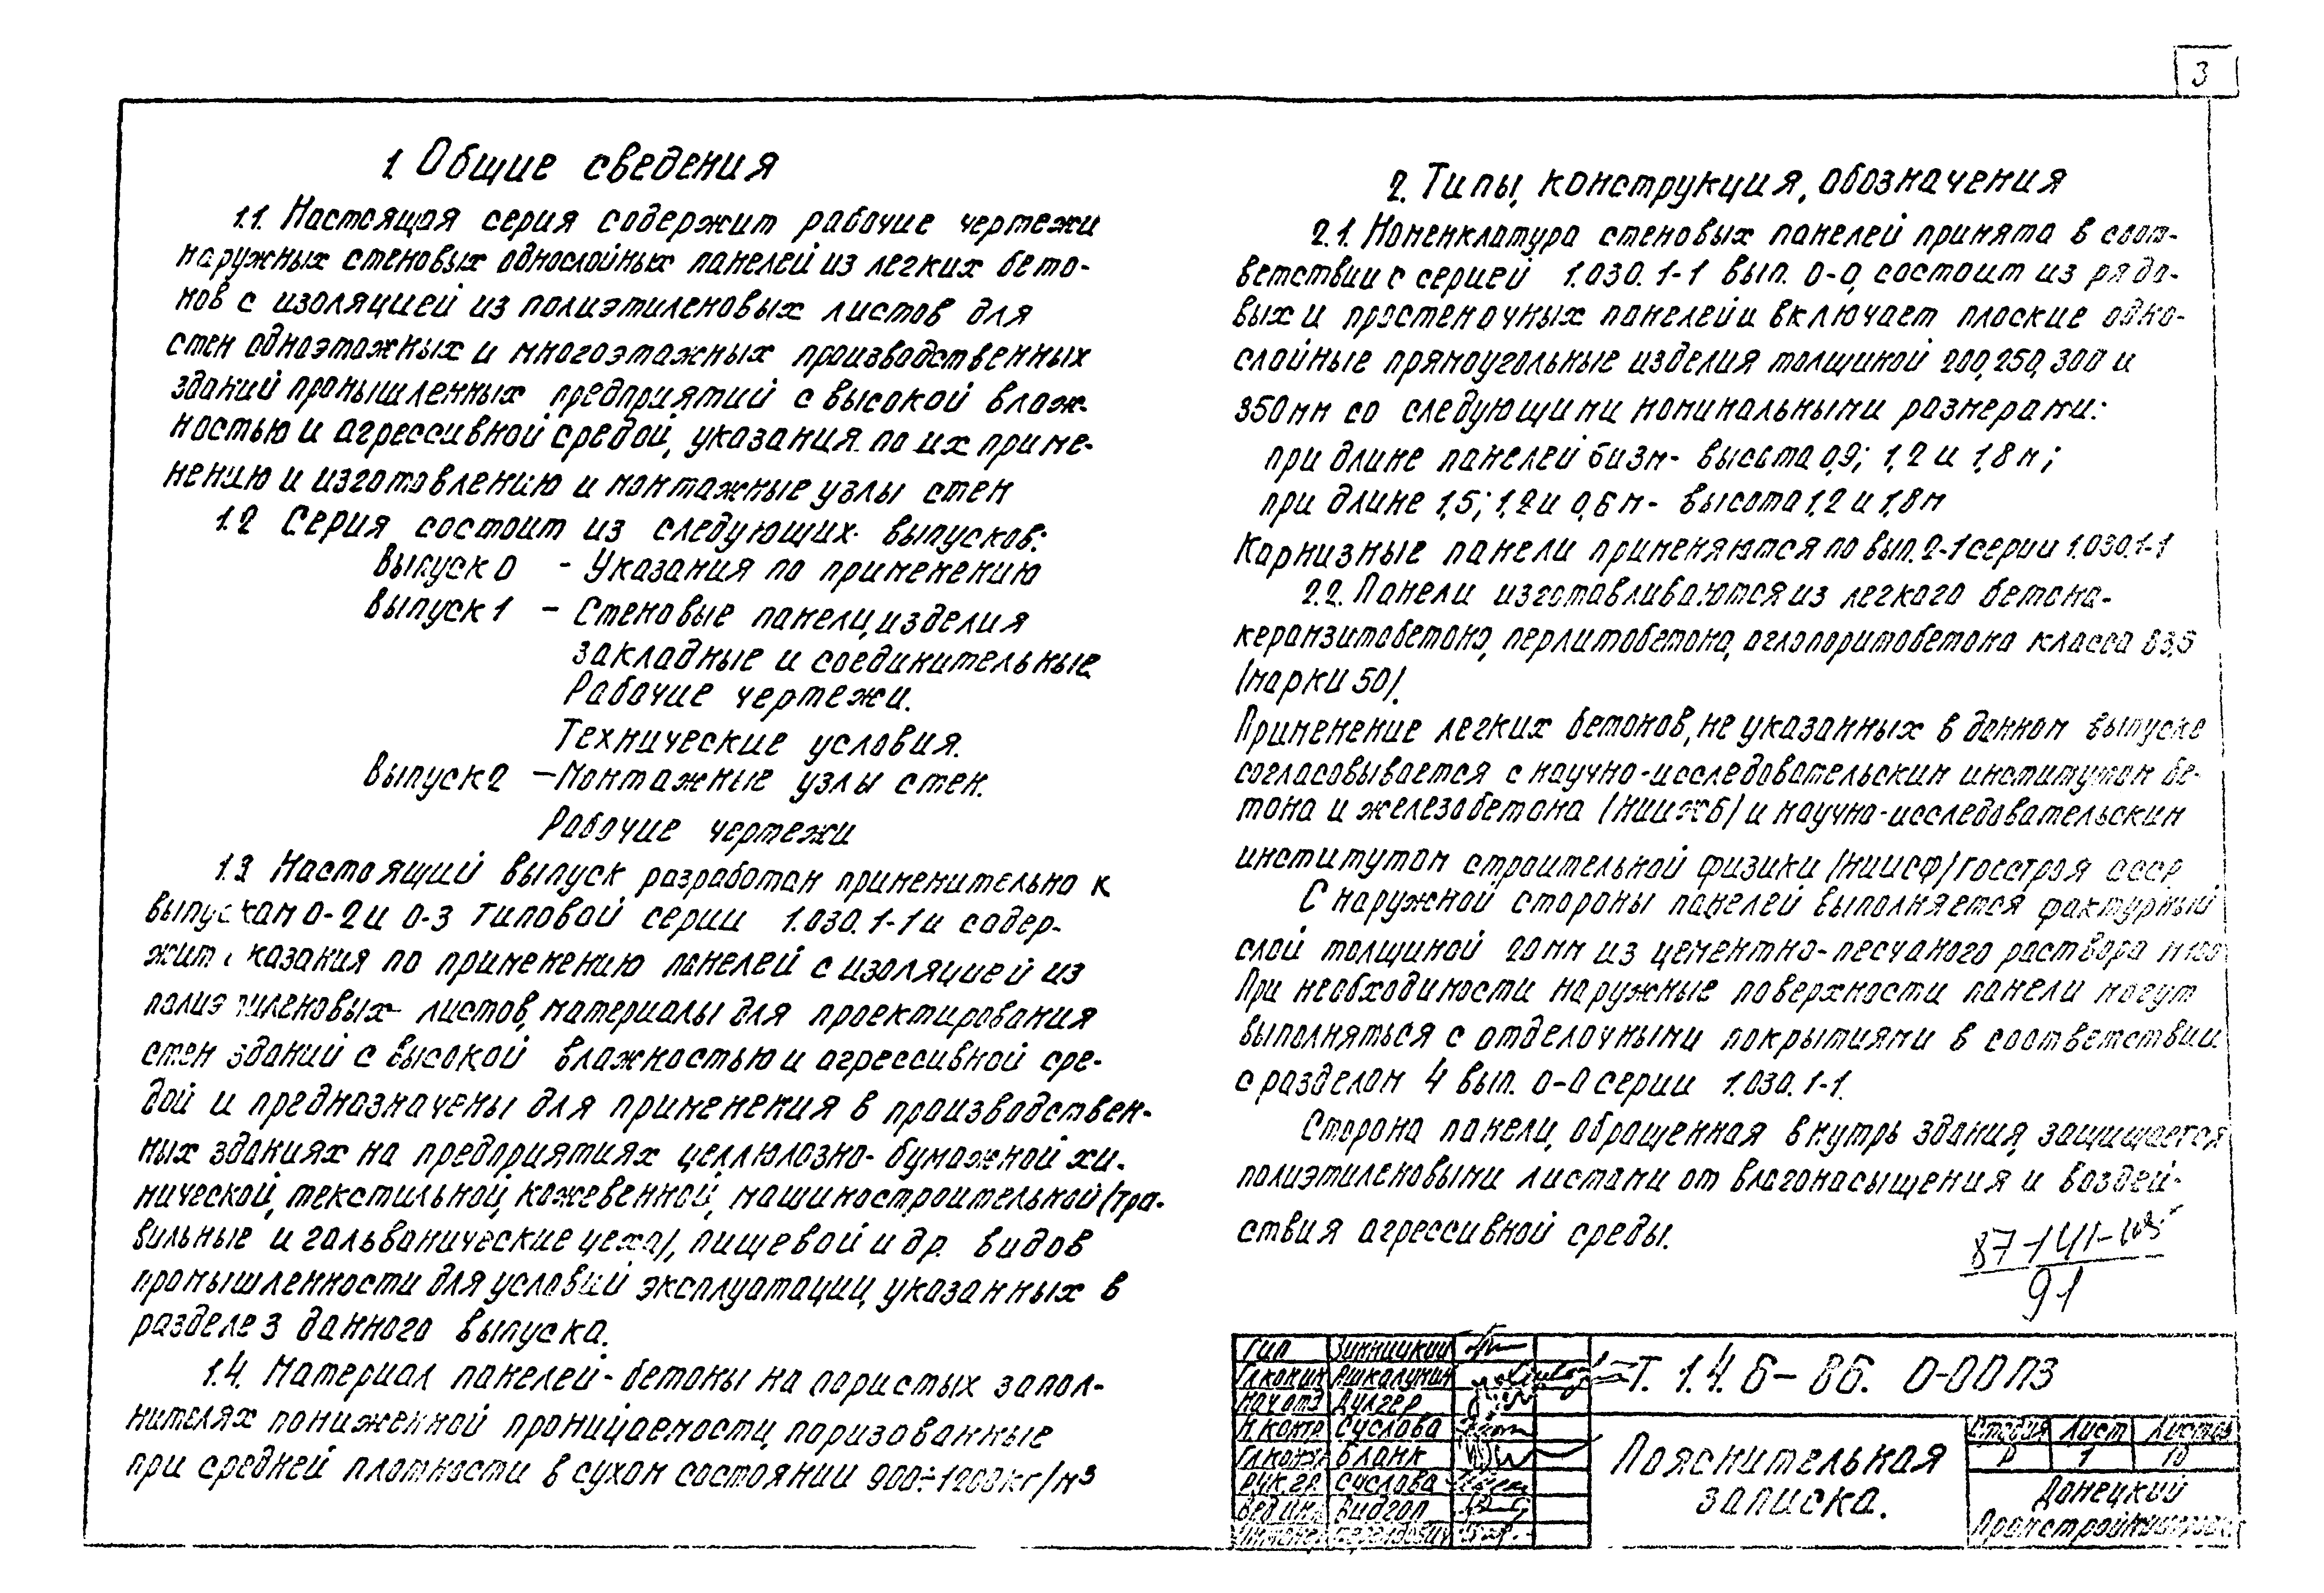 3
1. Общие сведения
1.1. Настоящая серия содержит рабочие чертежи
наружных стеновых однослойных панелей из легких бето-
нов с изоляцией из полиэтиленовых листов для
стен одноэтажных и многоэтажных производственных
зданий промышленных предприятий с высокой влаж-
ностью и агрессивной средой, указания по их приме-
нению и изготовлению и монтажные узлы стен
1.2 Серия состоит из следующих выпусков:
Выпуск 0 - Указания по применению
Выпуск 1 - Стеновые панели, изделия
закладные и соединительные.
Рабочие чертежи.
Технические условия.
Выпуск 2 - Монтажные узлы стен.
Рабочие чертежи
1.3 Настоящий выпуск разработан применительно к
выпускам 0-2 и 0-3 типовой серии 1.030.1-1 и содер-
жит казания по применению панелей с изоляцией из
полиэтиленовых листов, материалы для проектирования
стен зданий с высокой влажностью и агрессивной сре-
дой и предназначены для применения в производствен-
ных зданиях на предприятиях целлюлозно-бумажной хи-
мической, текстильной, кожевенной, машиностроительной (тра-
вильные и гальванические цеха), пищевой и др. видов
промышленности для условий эксплуатации, указанных в
разделе 3 данного выпуска.
1.4. Материал панелей - бетоны на пористых запол-
нителях пониженной проницаемости, поризованные
при средней плотности в сухом состоянии 900÷1200кг/м³
2. Типы, конструкция, обозначения
2.1. Номенклатура стеновых панелей принята в соот-
ветствии с серией 1.030.1-1 вып. 0-0, состоит из рядо-
вых и простеночных панелей и включает плоские одно-
слойные прямоугольные изделия толщиной 200, 250, 300 и
350мм со следующими номинальными размерами:
при длине панелей 6 и 3м - высота 0,9; 1,2 и 1,8 м;
при длине 1,5; 1,2 и 0,6 м - высота 1,2 и 1,8м
Карнизные панели применяются по вып. 2-1 серии 1.030.1-1
2.2. Панели изготавливаются из легкого бетона-
керамзитобетона, перлитобетона, аглопоритобетона класса В3,5
(марки 50).
Применение легких бетонов, не указанных в данном выпуске
согласовывается с научно-исследовательским институтом бе-
тона и железобетона (НИИЖБ) и научно-исследовательским
институтом строительной физики (НИИСФ) Госстроя СССР
С наружной стороны панелей выполняется фактурный
слой толщиной 20мм из цементно-песчаного раствора М100
При необходимости наружные поверхности панели могут
выполняться с отделочными покрытиями в соответствии
с разделом 4 вып. 0-0 серии 1.030.1-1.
Сторона панели, обращенная внутрь здания, защищается
полиэтиленовыми листами от влагонасыщения и воздей-
ствия агрессивной среды.
91
ГИП Зинницкий
Гл.конин Яшкалунин
Нач.отд Дулгер
Н.контр Суслова
Гл.конэр Бланк
Рук.гр. Суслова
Вед.инж Видгоп
Инженер
Т. 1.4.6-86. 0-00ПЗ
Пояснительная
записка.
Стадия Лист Листов
Р 1 10
Донецкий
Промстройниипроект